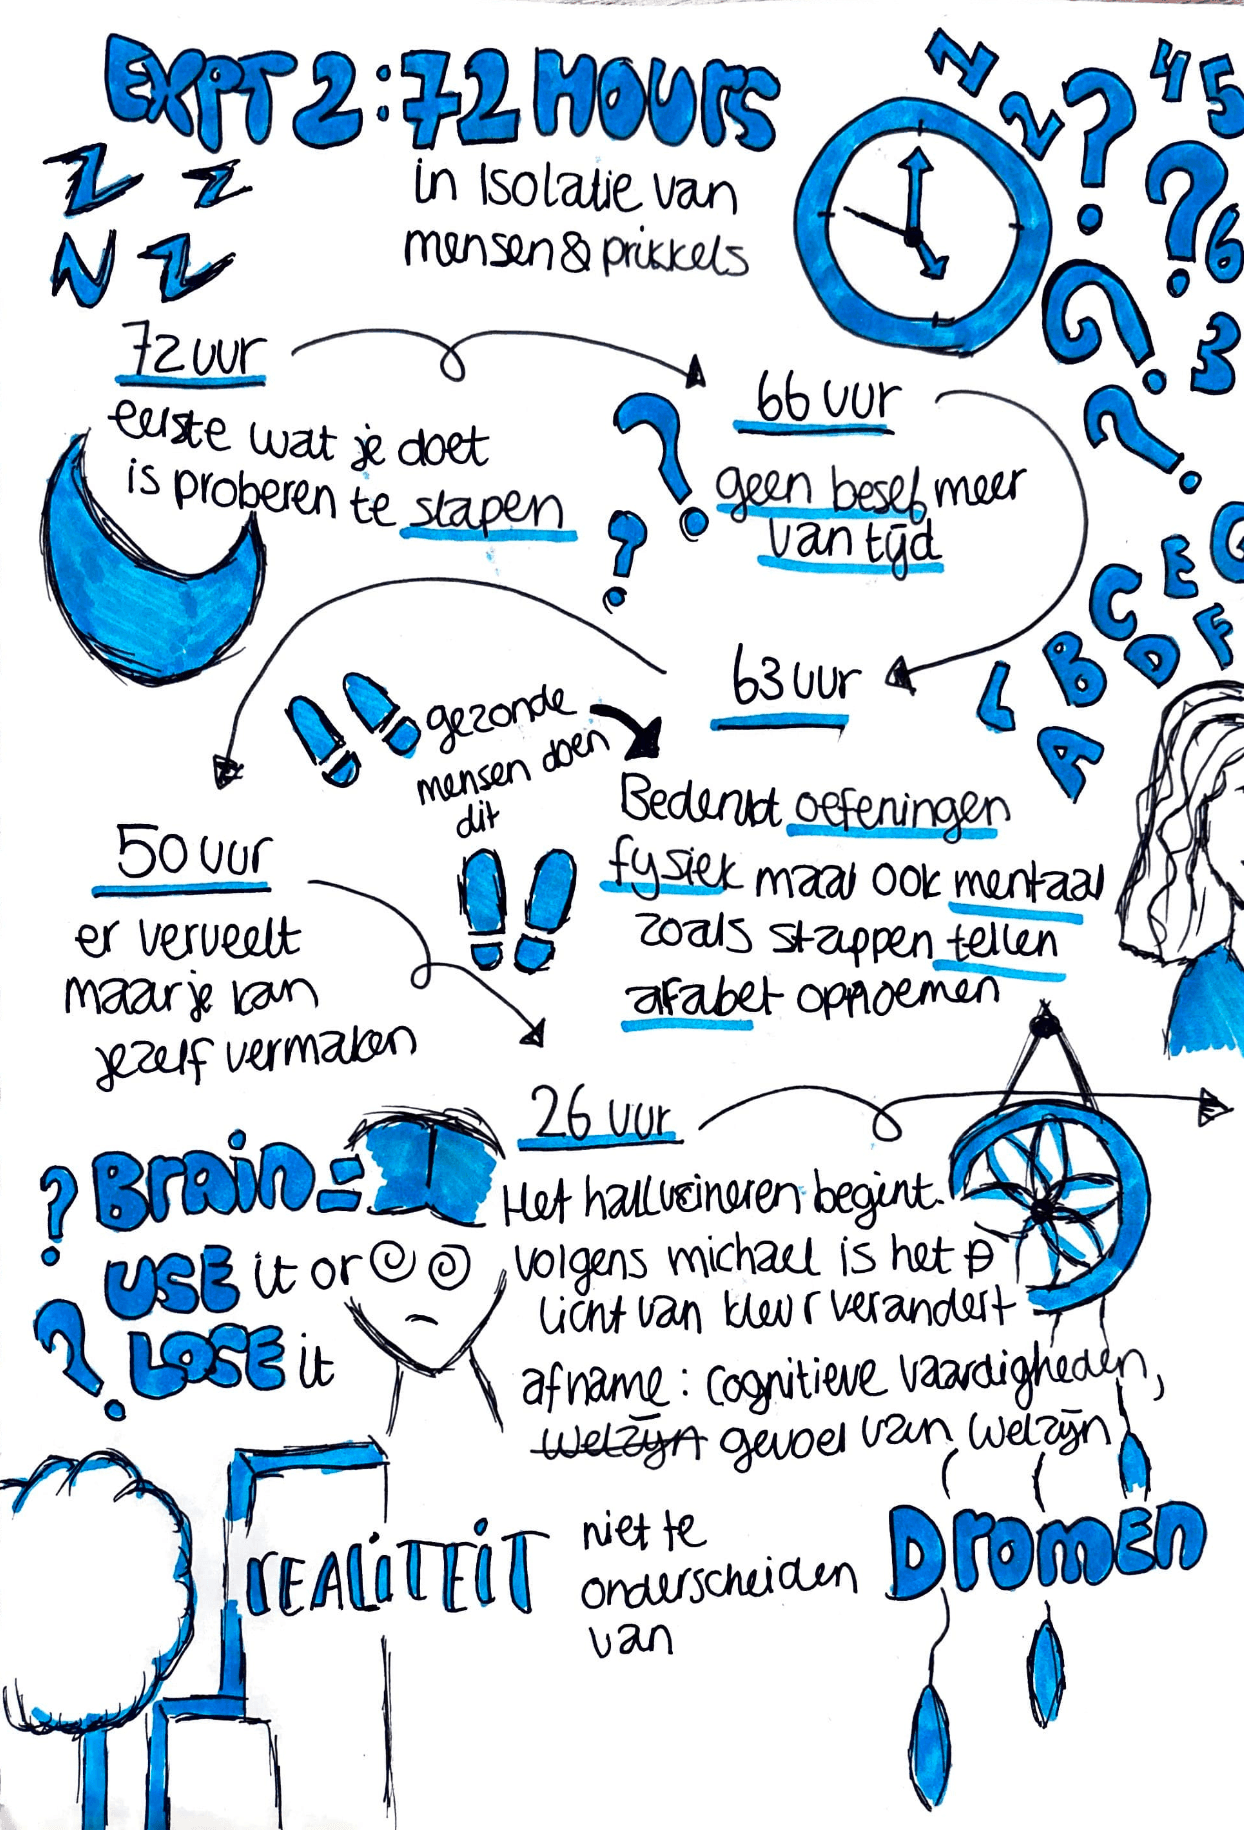 EXPT 2: 72 HOURS
in Isolatie van
mensen & prikkels
Z Z
N Z
1 2 ? 4 5
? 6
? 3
?
72 uur
eerste wat je doet
is proberen te slapen
66 uur
geen besef meer
van tijd
?
?
63 uur
gezonde
mensen doen
dit
Bedenkt oefeningen
fysiek maar ook mentaal
zoals stappen tellen
afabet opnoemen
A B C D E F G
L
50 uur
er verveelt
maar je kan
jezelf vermaken
26 uur
Het hallucineren begint.
volgens michael is het
licht van kleur verandert
afname: cognitieve vaardigheden,
welzijn gevoel van welzijn
? Brain =
USE it or
? LOSE it
REALiTEiT niet te
onderscheiden
van
DromEn